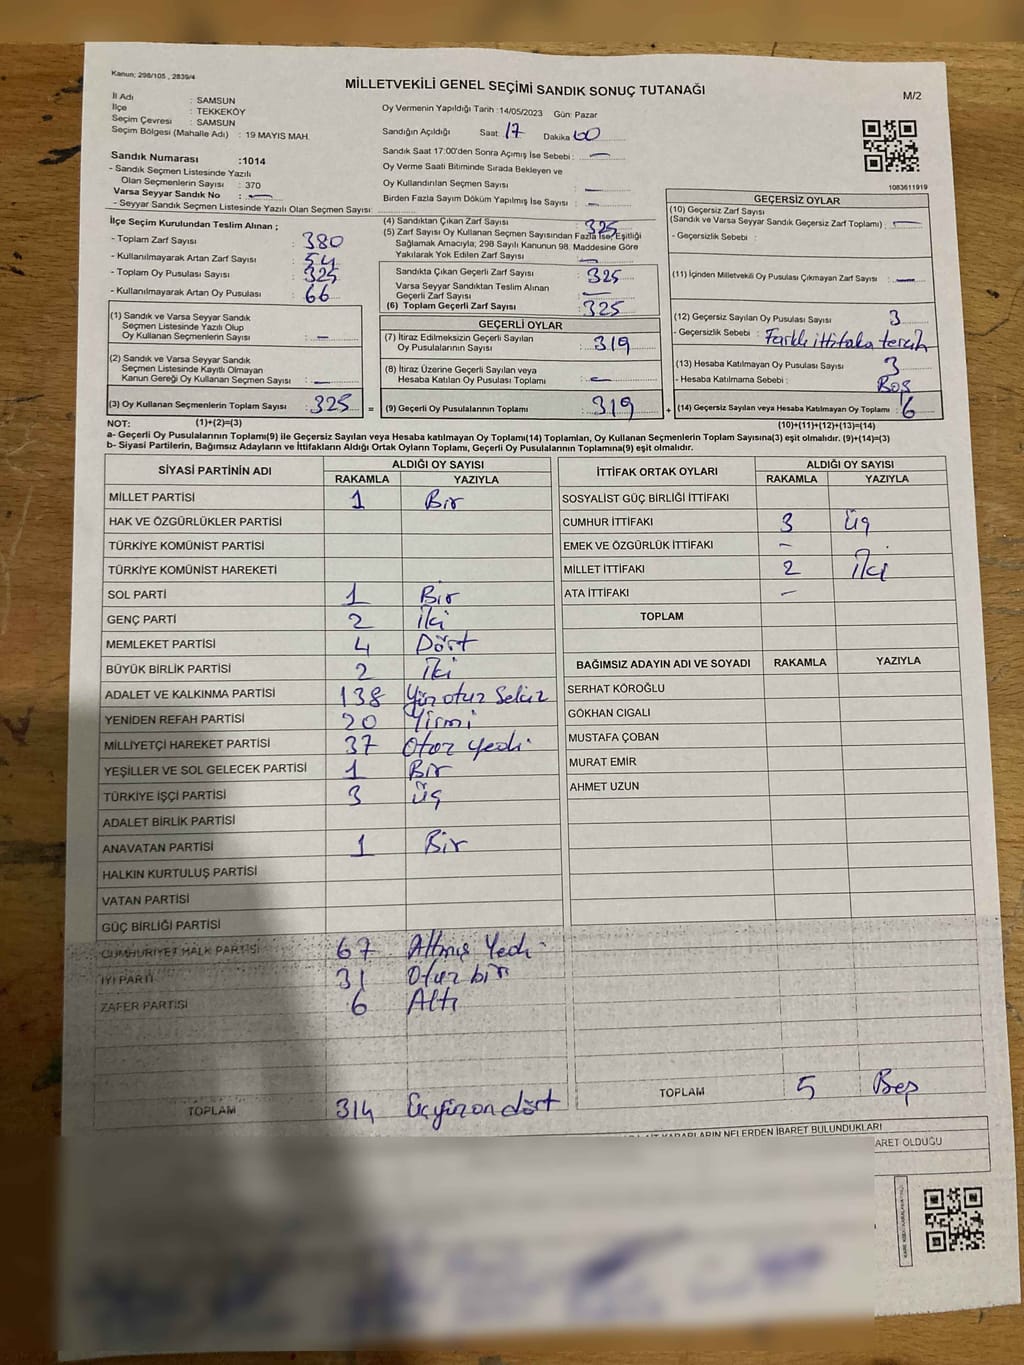 Kanun; 298/105 , 2839/4
MİLLETVEKİLİ GENEL SEÇİMİ SANDIK SONUÇ TUTANAĞI
M/2
İl Adı : SAMSUN
İlçe : TEKKEKÖY
Seçim Çevresi : SAMSUN
Seçim Bölgesi (Mahalle Adı) : 19 MAYIS MAH.
Oy Vermenin Yapıldığı Tarih :14/05/2023 Gün: Pazar
Sandığın Açıldığı Saat: 17 Dakika 00
Sandık Saat 17:00'den Sonra Açılmış İse Sebebi : —
Oy Verme Saati Bitiminde Sırada Bekleyen ve
Oy Kullandırılan Seçmen Sayısı : —
Birden Fazla Sayım Döküm Yapılmış İse Sayısı : —
1083611919
Sandık Numarası :1014
- Sandık Seçmen Listesinde Yazılı
Olan Seçmenlerin Sayısı : 370
Varsa Seyyar Sandık No : —
- Seyyar Sandık Seçmen Listesinde Yazılı Olan Seçmen Sayısı:
İlçe Seçim Kurulundan Teslim Alınan ;
- Toplam Zarf Sayısı : 380
- Kullanılmayarak Artan Zarf Sayısı : 54
- Toplam Oy Pusulası Sayısı : 325
- Kullanılmayarak Artan Oy Pusulası : 66
(1) Sandık ve Varsa Seyyar Sandık
Seçmen Listesinde Yazılı Olup
Oy Kullanan Seçmenlerin Sayısı : —
(2) Sandık ve Varsa Seyyar Sandık
Seçmen Listesinde Kayıtlı Olmayan
Kanun Gereği Oy Kullanan Seçmen Sayısı : —
(3) Oy Kullanan Seçmenlerin Toplam Sayısı : 325 =
(4) Sandıktan Çıkan Zarf Sayısı : 325
(5) Zarf Sayısı Oy Kullanan Seçmen Sayısından Fazla İse, Eşitliği
Sağlamak Amacıyla; 298 Sayılı Kanunun 98. Maddesine Göre
Yakılarak Yok Edilen Zarf Sayısı : —
Sandıkta Çıkan Geçerli Zarf Sayısı : 325
Varsa Seyyar Sandıktan Teslim Alınan
Geçerli Zarf Sayısı : —
(6) Toplam Geçerli Zarf Sayısı : 325
GEÇERLİ OYLAR
(7) İtiraz Edilmeksizin Geçerli Sayılan
Oy Pusulalarının Sayısı : 319
(8) İtiraz Üzerine Geçerli Sayılan veya
Hesaba Katılan Oy Pusulası Toplamı : —
(9) Geçerli Oy Pusulalarının Toplamı : 319 +
GEÇERSİZ OYLAR
(10) Geçersiz Zarf Sayısı
(Sandık ve Varsa Seyyar Sandık Geçersiz Zarf Toplamı) : —
- Geçersizlik Sebebi :
(11) İçinden Milletvekili Oy Pusulası Çıkmayan Zarf Sayısı : —
(12) Geçersiz Sayılan Oy Pusulası Sayısı : 3
- Geçersizlik Sebebi : Farklı ittifaka tercih
(13) Hesaba Katılmayan Oy Pusulası Sayısı : 3
- Hesaba Katılmama Sebebi : Boş
(14) Geçersiz Sayılan veya Hesaba Katılmayan Oy Toplamı : 6
NOT: (1)+(2)=(3) (10)+(11)+(12)+(13)=(14)
a- Geçerli Oy Pusulalarının Toplamı(9) ile Geçersiz Sayılan veya Hesaba katılmayan Oy Toplamı(14) Toplamları, Oy Kullanan Seçmenlerin Toplam Sayısına(3) eşit olmalıdır. (9)+(14)=(3)
b- Siyasi Partilerin, Bağımsız Adayların ve İttifakların Aldığı Ortak Oyların Toplamı, Geçerli Oy Pusulalarının Toplamına(9) eşit olmalıdır.
SİYASİ PARTİNİN ADI ALDIĞI OY SAYISI
RAKAMLA YAZIYLA
MİLLET PARTİSİ 1 Bir
HAK VE ÖZGÜRLÜKLER PARTİSİ
TÜRKİYE KOMÜNİST PARTİSİ
TÜRKİYE KOMÜNİST HAREKETİ
SOL PARTİ 1 Bir
GENÇ PARTİ 2 İki
MEMLEKET PARTİSİ 4 Dört
BÜYÜK BİRLİK PARTİSİ 2 İki
ADALET VE KALKINMA PARTİSİ 138 Yüz otuz Sekiz
YENİDEN REFAH PARTİSİ 20 Yirmi
MİLLİYETÇİ HAREKET PARTİSİ 37 Otuz yedi
YEŞİLLER VE SOL GELECEK PARTİSİ 1 Bir
TÜRKİYE İŞÇİ PARTİSİ 3 Üç
ADALET BİRLİK PARTİSİ
ANAVATAN PARTİSİ 1 Bir
HALKIN KURTULUŞ PARTİSİ
VATAN PARTİSİ
GÜÇ BİRLİĞİ PARTİSİ
CUMHURİYET HALK PARTİSİ 67 Altmış Yedi
İYİ PARTİ 31 Otuz bir
ZAFER PARTİSİ 6 Altı
TOPLAM 314 Üçyüzondört
İTTİFAK ORTAK OYLARI ALDIĞI OY SAYISI
RAKAMLA YAZIYLA
SOSYALİST GÜÇ BİRLİĞİ İTTİFAKI
CUMHUR İTTİFAKI 3 Üç
EMEK VE ÖZGÜRLÜK İTTİFAKI —
MİLLET İTTİFAKI 2 İki
ATA İTTİFAKI —
TOPLAM
BAĞIMSIZ ADAYIN ADI VE SOYADI RAKAMLA YAZIYLA
SERHAT KÖROĞLU
GÖKHAN CIGALI
MUSTAFA ÇOBAN
MURAT EMİR
AHMET UZUN
TOPLAM 5 Beş
KARARLARIN NELERDEN İBARET BULUNDUKLARI
ARET OLDUĞU